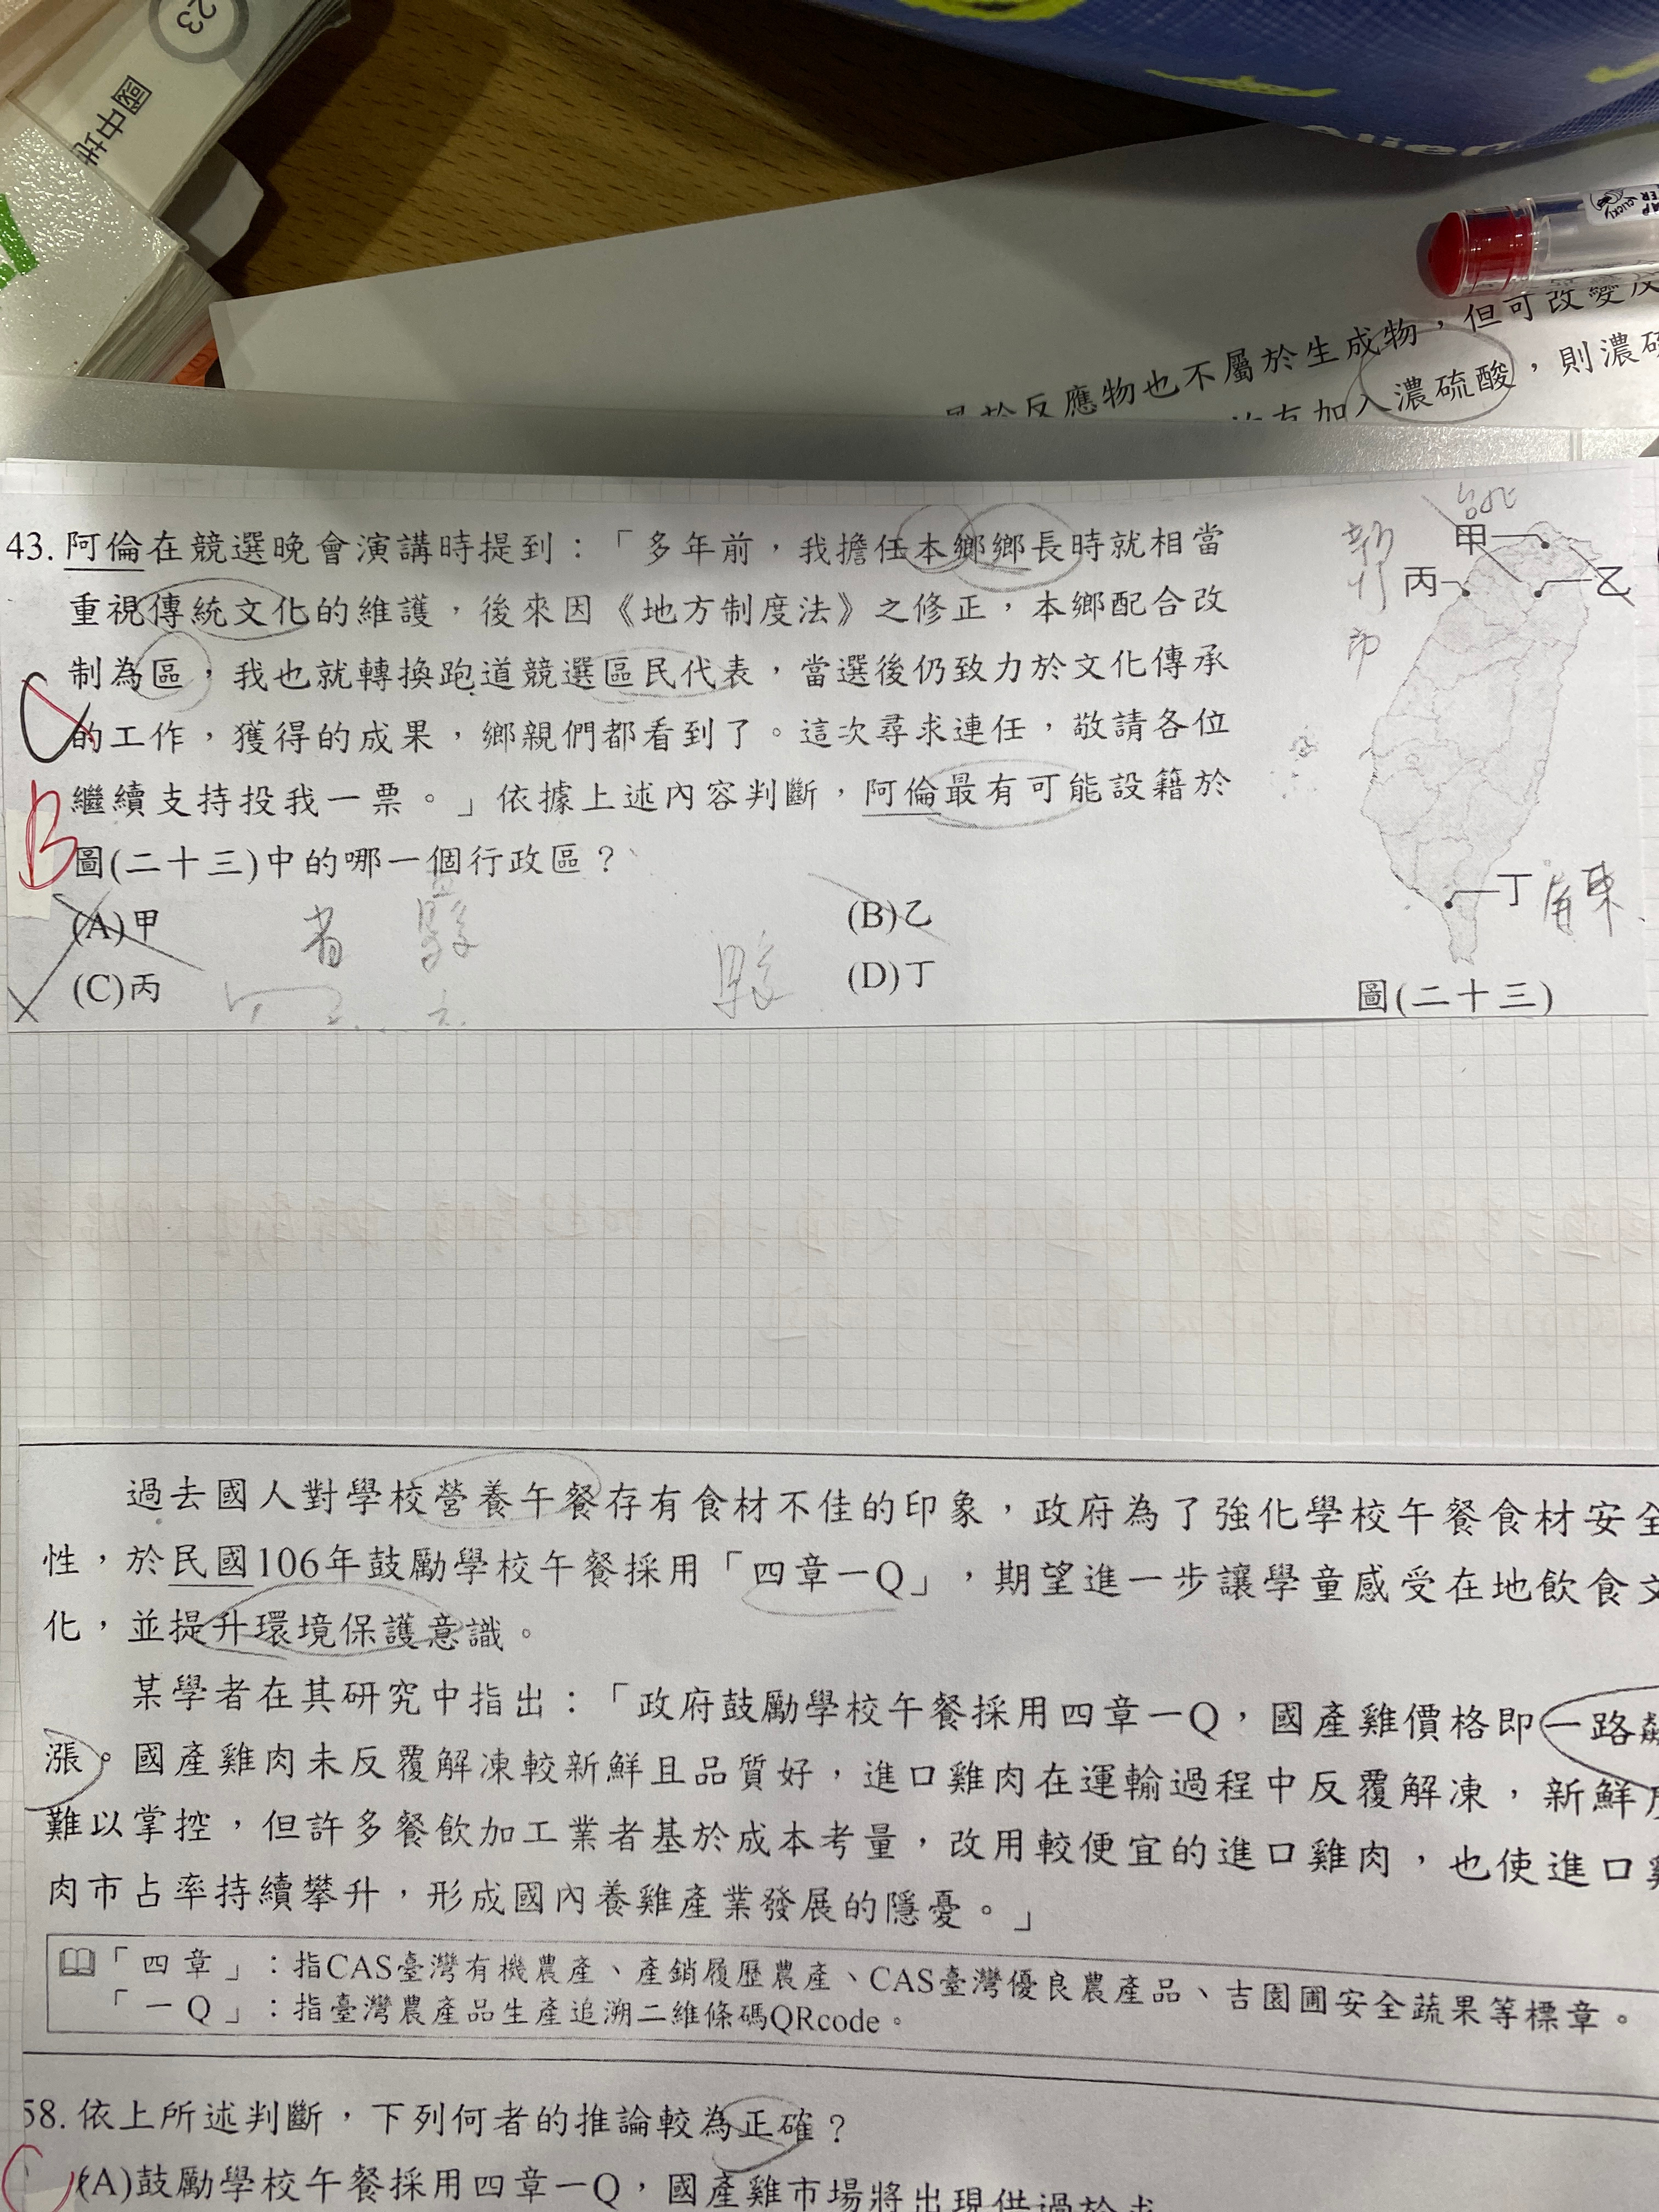 23
國中地
Alien
屬於生成物,但可改變反
反應物也不
加入濃硫酸,則濃硫
43. 阿倫在競選晚會演講時提到:「多年前,我擔任本鄉鄉長時就相當
重視傳統文化的維護,後來因《地方制度法》之修正,本鄉配合改
制為區,我也就轉換跑道競選區民代表,當選後仍致力於文化傳承
的工作,獲得的成果,鄉親們都看到了。這次尋求連任,敬請各位
繼續支持投我一票。」依據上述內容判斷,阿倫最有可能設籍於
圖(二十三)中的哪一個行政區?
(A)甲
(B)乙
(C)丙
(D)丁
C
B
省
縣
縣
台北
新
竹
甲
丙
乙
丁
屏東
圖(二十三)
過去國人對學校營養午餐存有食材不佳的印象,政府為了強化學校午餐食材安全
性,於民國106年鼓勵學校午餐採用「四章一Q」,期望進一步讓學童感受在地飲食文
化,並提升環境保護意識。
某學者在其研究中指出:「政府鼓勵學校午餐採用四章一Q,國產雞價格即一路飆
漲。國產雞肉未反覆解凍較新鮮且品質好,進口雞肉在運輸過程中反覆解凍,新鮮度
難以掌控,但許多餐飲加工業者基於成本考量,改用較便宜的進口雞肉,也使進口雞
肉市占率持續攀升,形成國內養雞產業發展的隱憂。」
「四章」:指CAS臺灣有機農產、產銷履歷農產、CAS臺灣優良農產品、吉園圃安全蔬果等標章。
「一Q」:指臺灣農產品生產追溯二維條碼QRcode。
58. 依上所述判斷,下列何者的推論較為正確?
(A)鼓勵學校午餐採用四章一Q,國產雞市場將出現供過於求